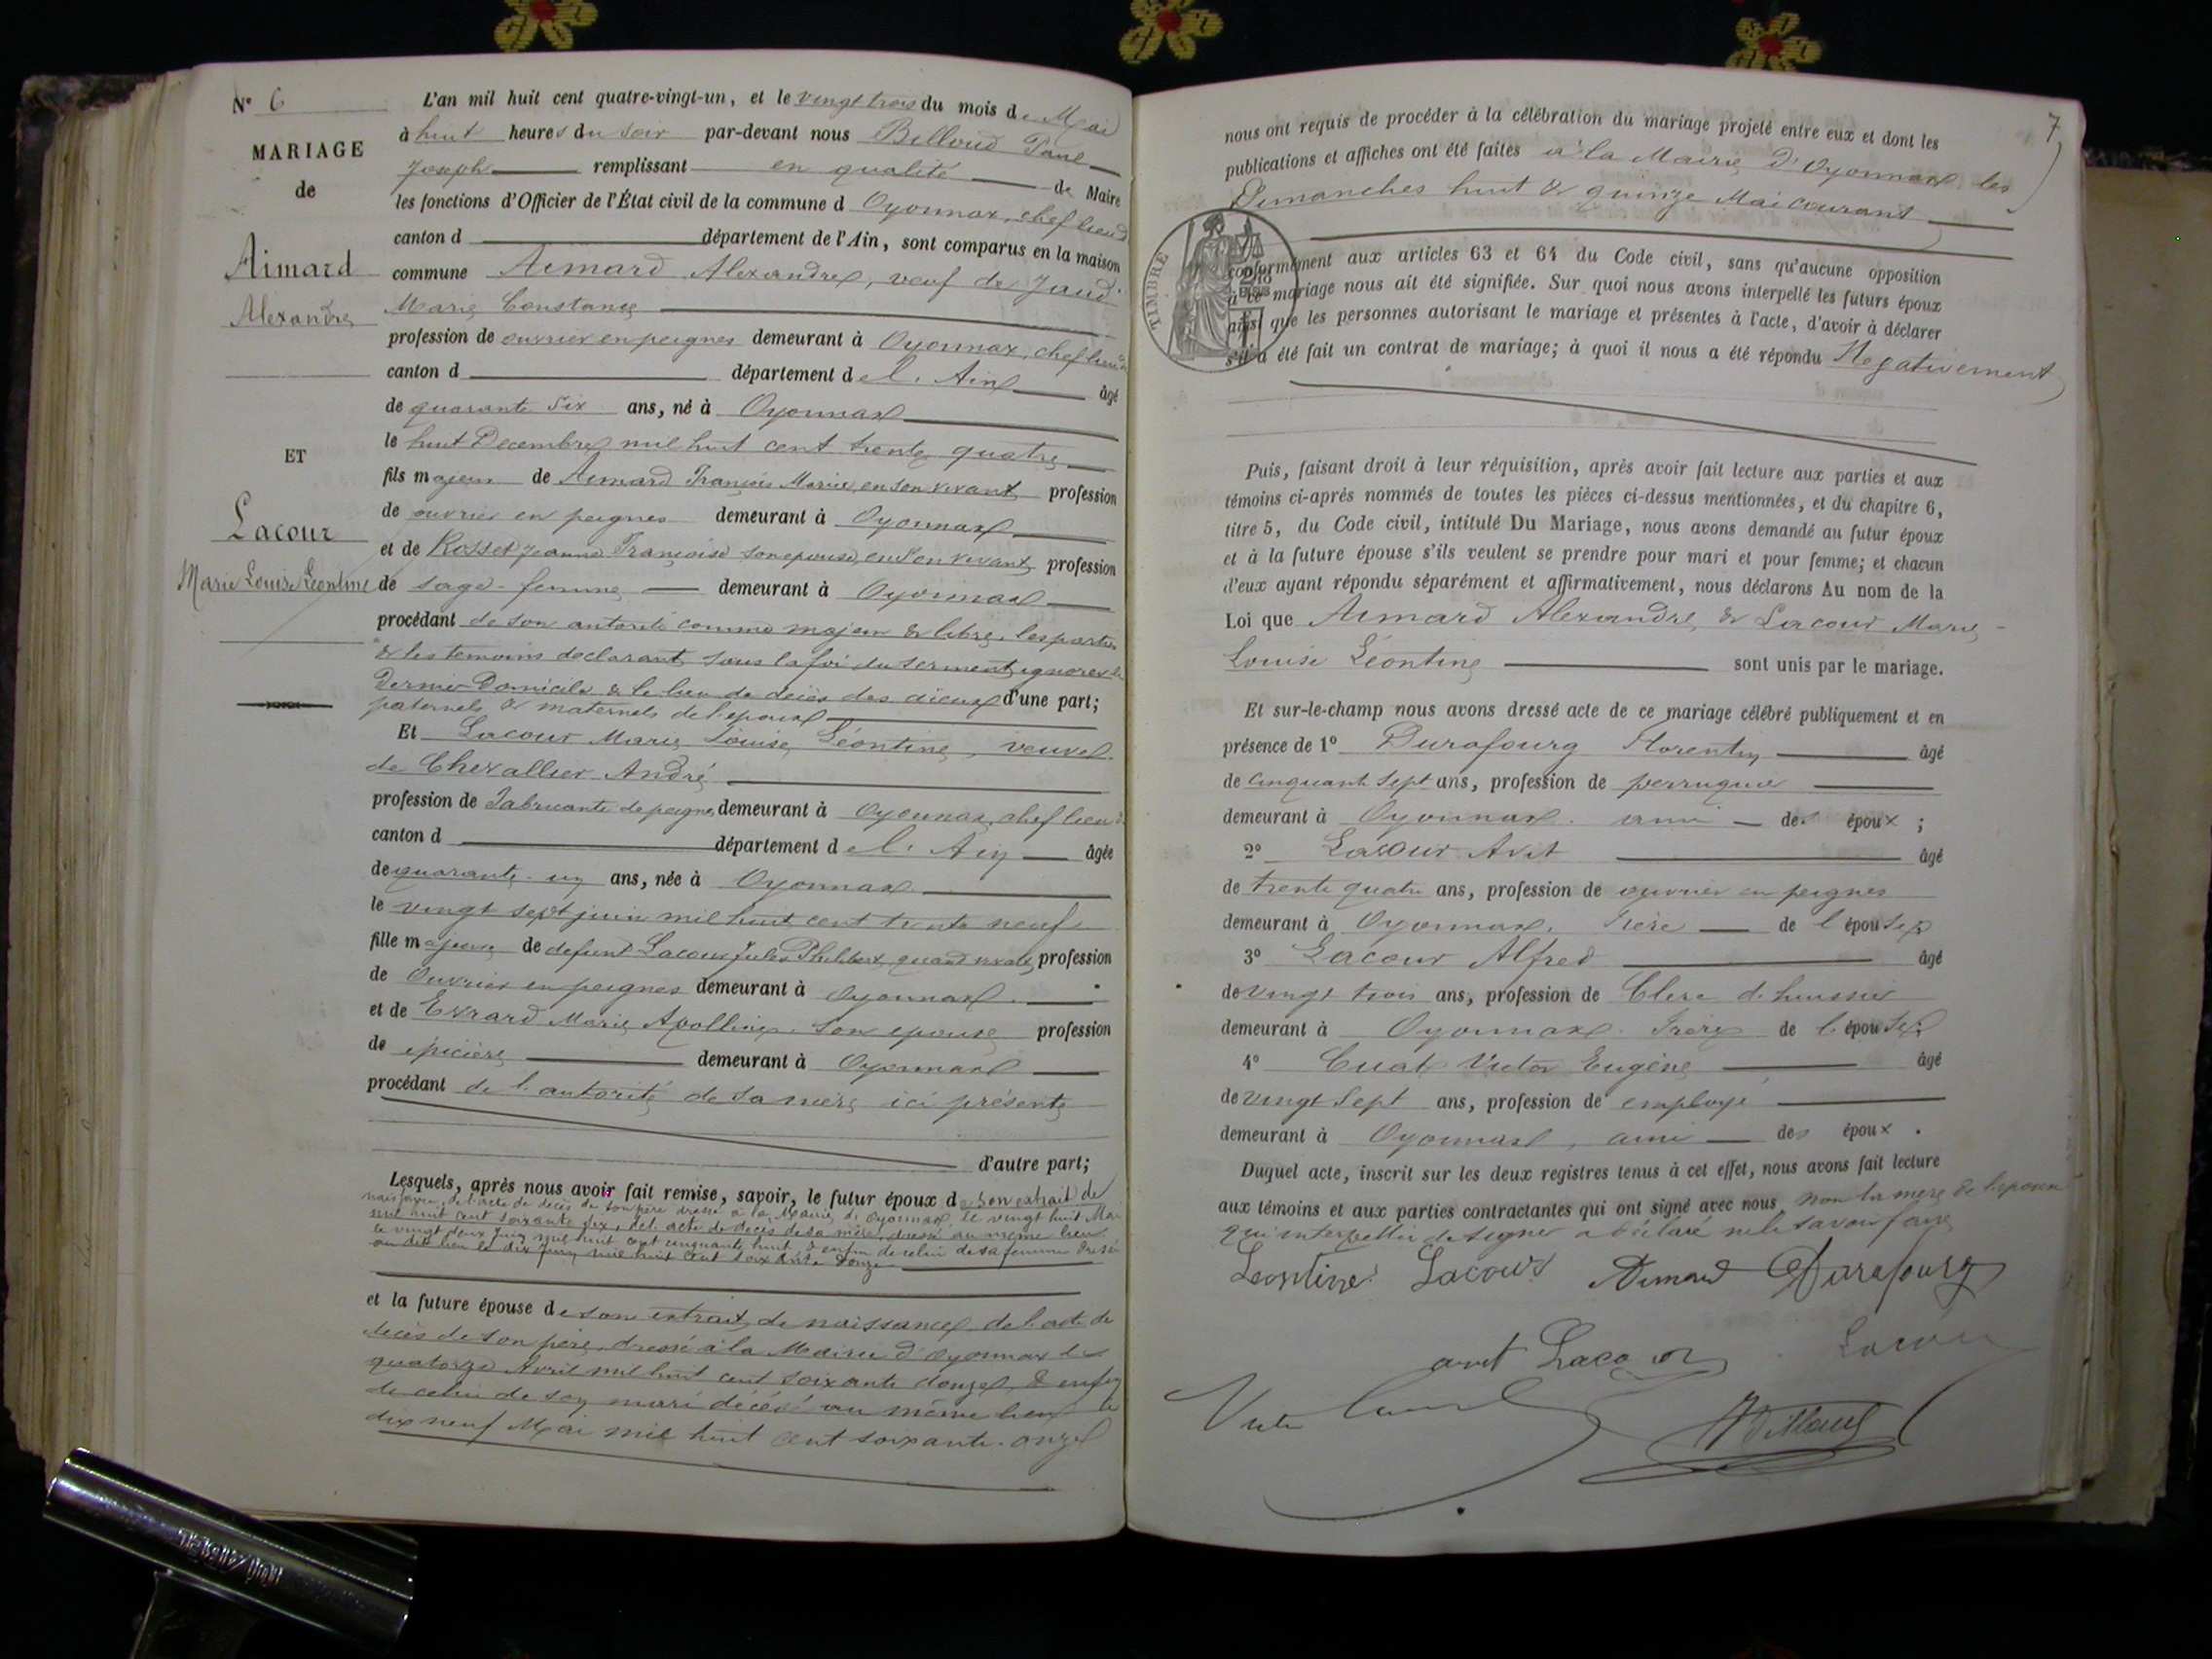 N° 6
MARIAGE
de
Aimard
Alexandre
ET
Lacour
Marie Louise Léontine
L'an mil huit cent quatre-vingt-un, et le vingt trois du mois de Mai
à huit heures du soir par-devant nous Belloud Paul
Joseph remplissant en qualité de Maire
les fonctions d'Officier de l'État civil de la commune d Oyonnax, chef lieu d
canton d département de l'Ain, sont comparus en la maison
commune Aimard Alexandre, veuf de Jaud
Marie Constance
profession de ouvrier en peignes demeurant à Oyonnax, chef lieu d
canton d département de l'Ain âgé
de quarante six ans, né à Oyonnax
le huit Decembre mil huit cent trente quatre
fils majeur de Aimard François Marie, en son vivant profession
de ouvrier en peignes demeurant à Oyonnax
et de Rosset Jeanne Françoise son epouse, en son vivant profession
de sage-femme demeurant à Oyonnax
procédant de son autorité comme majeur & libre, les parties
& les temoins declarant sous la foi du serment ignorer le
Dernier Domicile & le lieu de décès des aieux d'une part;
paternels & maternels de l'epoux
Et Lacour Marie Louise Léontine, veuve
de Chevallier André
profession de Fabricante de peignes demeurant à Oyonnax, chef lieu d
canton d département de l'Ain âgée
de quarante-un ans, née à Oyonnax
le vingt sept juin mil huit cent trente neuf
fille majeure de defunt Lacour Jules Philibert, quand vivait, profession
de Ouvrier en peignes demeurant à Oyonnax
et de Evrard Marie Apolline son epouse profession
de épicière demeurant à Oyonnax
procédant de l'autorité de sa mère ici présente
d'autre part;
Lesquels, après nous avoir fait remise, savoir, le futur époux de son extrait de
naissance, de l'acte de décès de son père dressé à la Mairie d'Oyonnax le vingt huit Mai
mil huit cent soixante dix, de l'acte de décès de sa mère, dressé au même lieu
le vingt deux Juin mil huit cent cinquante huit & enfin de celui de sa femme dressé
au dit lieu le dix Juin mil huit cent soixante douze
et la future épouse de son extrait de naissance, de l'acte de
décès de son père, dressé à la Mairie d'Oyonnax le
quatorze Avril mil huit cent soixante douze, & enfin
de celui de son mari décédé au même lieu le
dix neuf Mai mil huit cent soixante-onze
7
nous ont requis de procéder à la célébration du mariage projeté entre eux et dont les
publications et affiches ont été faites à la Mairie d'Oyonnax les
Dimanches huit & quinze Mai courant
TIMBRE
conformément aux articles 63 et 64 du Code civil, sans qu'aucune opposition
à ce mariage nous ait été signifiée. Sur quoi nous avons interpellé les futurs époux
ainsi que les personnes autorisant le mariage et présentes à l'acte, d'avoir à déclarer
s'il a été fait un contrat de mariage; à quoi il nous a été répondu Negativement
Puis, faisant droit à leur réquisition, après avoir fait lecture aux parties et aux
témoins ci-après nommés de toutes les pièces ci-dessus mentionnées, et du chapitre 6,
titre 5, du Code civil, intitulé Du Mariage, nous avons demandé au futur époux
et à la future épouse s'ils veulent se prendre pour mari et pour femme; et chacun
d'eux ayant répondu séparément et affirmativement, nous déclarons Au nom de la
Loi que Aimard Alexandre & Lacour Marie
Louise Léontine sont unis par le mariage.
Et sur-le-champ nous avons dressé acte de ce mariage célébré publiquement et en
présence de 1° Durafourg Florentin âgé
de cinquante sept ans, profession de perruquier
demeurant à Oyonnax. ami des époux ;
2° Lacour Avit âgé
de trente quatre ans, profession de ouvrier en peignes
demeurant à Oyonnax. frère de l'épouse
3° Lacour Alfred âgé
de vingt trois ans, profession de Clerc d'huissier
demeurant à Oyonnax. frère de l'épouse
4° Cuat Victor Eugène âgé
de vingt Sept ans, profession de employé
demeurant à Oyonnax, ami des époux .
Duquel acte, inscrit sur les deux registres tenus à cet effet, nous avons fait lecture
aux témoins et aux parties contractantes qui ont signé avec nous non la mère de l'epouse
qui interpellée de signer a déclaré ne le savoir faire
Léontine Lacour Aimard Durafourg
avit Lacour Lacour
Victor Cuat Belloud